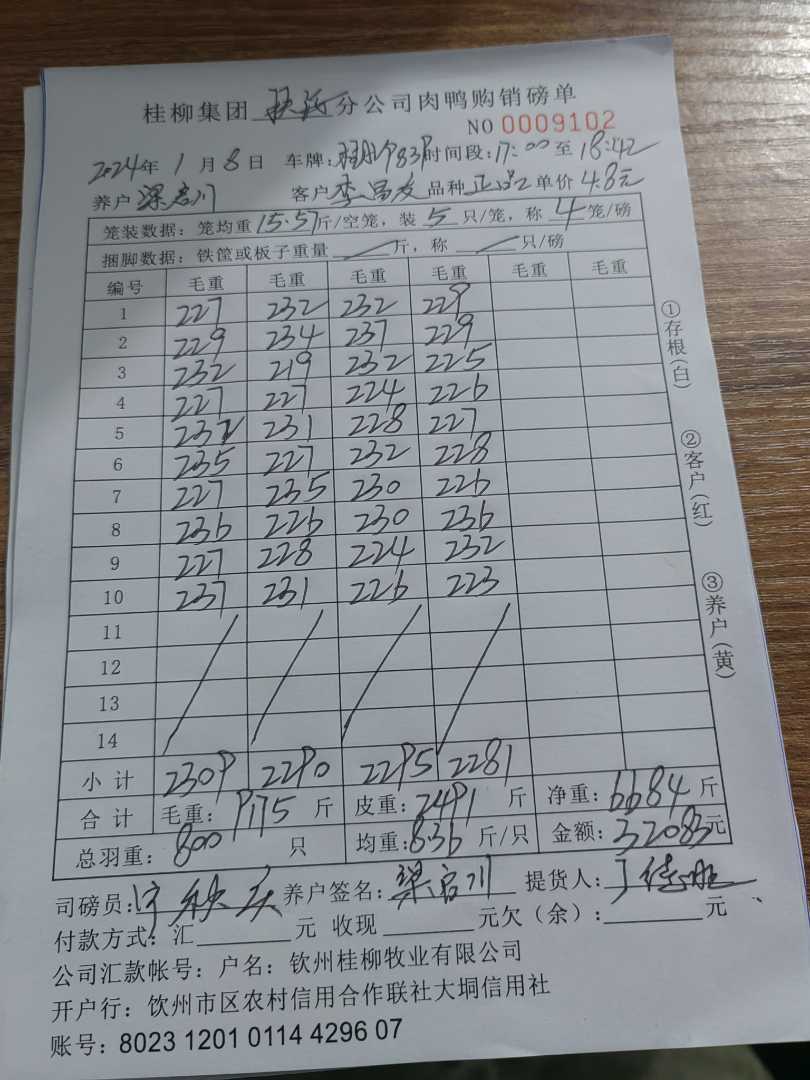 桂柳集团 分公司肉鸭购销磅单
NO 0009102
2024年 1 月 8 日 车牌: 时间段:17:00 至 18:42
养户 梁启川 客户 李昌友 品种 单价 4.8元
笼装数据:笼均重 15.57 斤/空笼,装 5 只/笼,称 4 笼/磅
捆脚数据:铁筐或板子重量 / 斤,称 / 只/磅
编号 毛重 毛重 毛重 毛重 毛重 毛重
1 227 232 232 229
2 229 234 237 229
3 232 219 232 225
4 227 227 224 226
5 232 231 228 227
6 235 227 232 228
7 227 235 230 226
8 236 226 230 236
9 227 228 224 232
10 237 231 226 223
11
12
13
14
小计 2309 2290 2295 2281
合计 毛重: 9175 斤 皮重: 2491 斤 净重: 6684 斤
总羽重: 800 只 均重: 8.36 斤/只 金额: 32083元
司磅员: 养户签名: 梁启川 提货人:
付款方式:汇 元 收现 元欠(余): 元
公司汇款帐号:户名:钦州桂柳牧业有限公司
开户行:饮州市区农村信用合作联社大垌信用社
账号:8023 1201 0114 4296 07
①存根(白)
②客户(红)
③养户(黄)